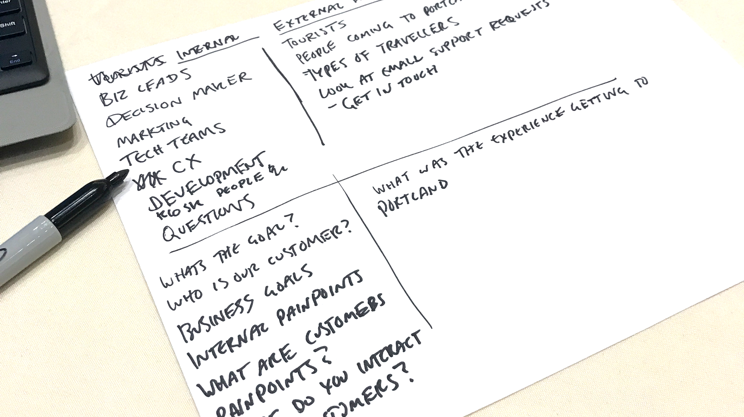 INTERNAL
BIZ LEADS
DECISION MAKER
MARKTING
TECH TEAMS
CX
DEVELOPMENT
KIOSK PEOPLE
QUESTIONS
WHATS THE GOAL?
WHO IS OUR CUSTOMER?
BUSINESS GOALS
INTERNAL PAINPOINTS
WHAT ARE CUSTOMERS
PAINPOINTS?
DO YOU INTERACT
EXTERNAL
TOURISTS
PEOPLE COMING TO
TYPES OF TRAVELLERS
LOOK AT EMAIL SUPPORT REQUESTS
- GET IN TOUCH
WHAT WAS THE EXPERIENCE GETTING TO
PORTLAND